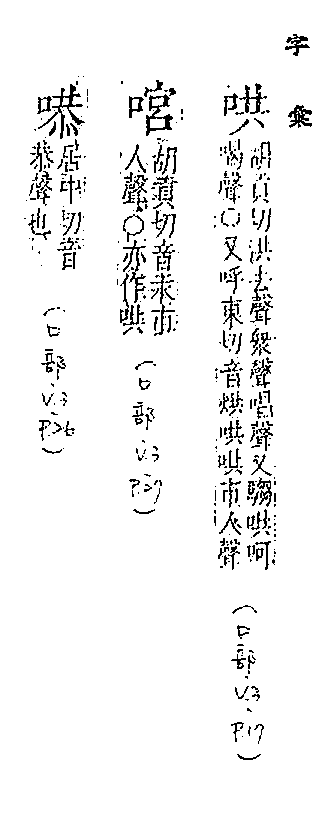 字彙
哄
胡貢切洪去聲衆聲唱聲又騶哄呵
喝聲○又呼東切音烘哄哄市人聲
(口部.V.3.P.17)
㖓
胡貢切音
市
人聲○亦作哄
(口部.V.3
㗋
居中切音
恭聲也
(口部.V.3